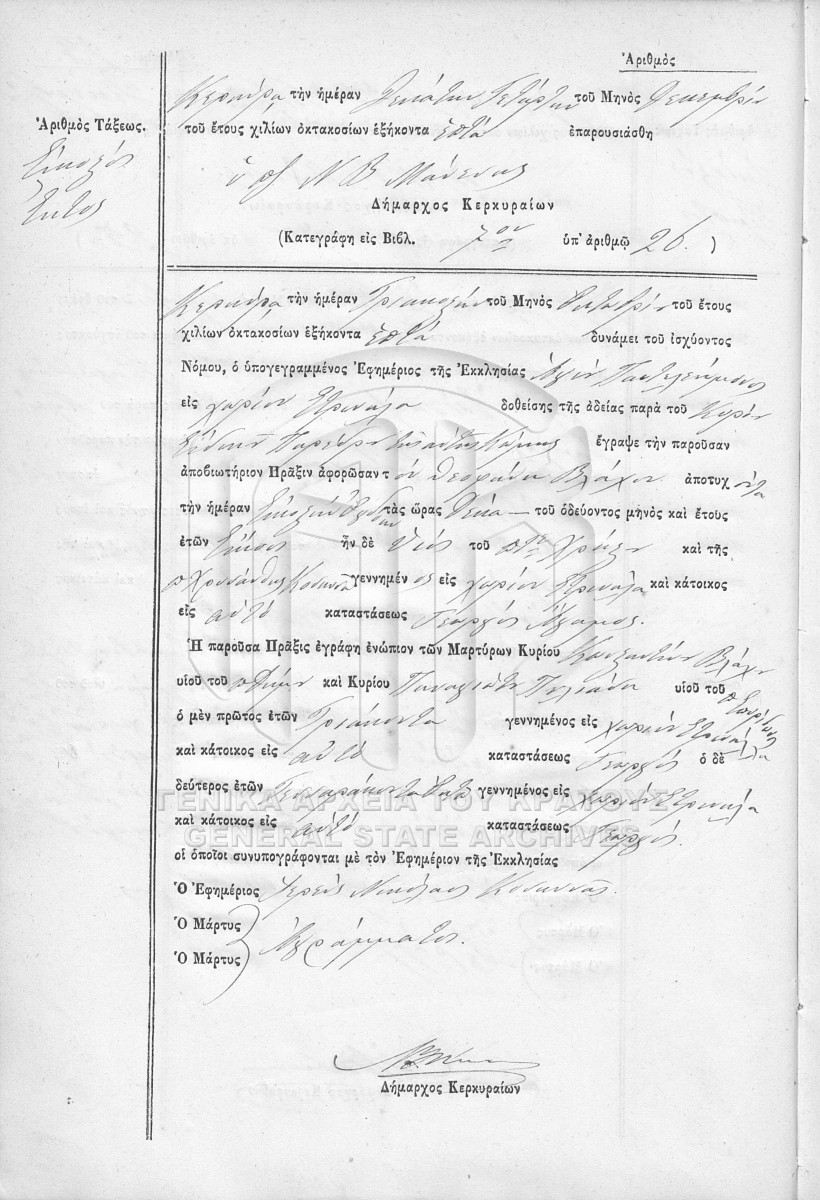 Ἀριθμὸς
Κερκύρα τὴν ἡμέραν Δεκάτην Τετάρτην τοῦ Μηνὸς Δεκεμβρίου
Ἀριθμὸς Τάξεως.
τοῦ ἔτους χιλίων ὀκτακοσίων ἑξήκοντα ἑπτά ἐπαρουσιάσθη
Εἰκοστός
Ἕκτος
Ν Β Μάνεσης
Δήμαρχος Κερκυραίων
(Κατεγράφη εἰς Βιβλ. 7ον ὑπ' ἀριθμῷ 26. )
Κερκύρα τὴν ἡμέραν Τριακοστὴν τοῦ Μηνὸς Ὀκτωβρίου τοῦ ἔτους
χιλίων ὀκτακοσίων ἑξήκοντα ἑπτά δυνάμει τοῦ ἰσχύοντος
Νόμου, ὁ ὑπογεγραμμένος Ἐφημέριος τῆς Ἐκκλησίας Ἁγίου Παντελεήμονος
εἰς χωρίον Στρινίλα δοθείσης τῆς ἀδείας παρὰ τοῦ Κυρίου
Εἰδικοῦ Παρέδρου ἔγραψε τὴν παροῦσαν
ἀποβιωτήριον Πρᾶξιν ἀφορῶσαν τ όν Θεοφάνη Βλάχον ἀποτυχ όντα
τὴν ἡμέραν Εἰκοστήν Ὀγδόην τὰς ὥρας Δέκα — τοῦ ὁδεύοντος μηνὸς καὶ ἔτους
ἐτῶν Εἴκοσι ἦν δὲ Υἱός τοῦ καὶ τῆς
γεννημέν ος εἰς χωρίον Στρινίλα καὶ κάτοικος
εἰς αὐτό καταστάσεως Γεωργός Ἄγαμος.
Ἡ παροῦσα Πρᾶξις ἐγράφη ἐνώπιον τῶν Μαρτύρων Κυρίου Κωνσταντίνου Βλάχου
υἱοῦ τοῦ καὶ Κυρίου Παναγιώτη υἱοῦ τοῦ Σπυρίδωνος
ὁ μὲν πρῶτος ἐτῶν Τριάκοντα γεννημένος εἰς χωρίον Στρινίλα
καὶ κάτοικος εἰς αὐτό καταστάσεως Γεωργός ὁ δὲ
δεύτερος ἐτῶν Τεσσαράκοντα γεννημένος εἰς χωρίον Στρινίλα
καὶ κάτοικος εἰς αὐτό καταστάσεως Γεωργός.
οἱ ὁποῖοι συνυπογράφονται μὲ τὸν Ἐφημέριον τῆς Ἐκκλησίας
Ὁ Ἐφημέριος Ἱερεύς Νικόλαος
Ὁ Μάρτυς
Ἀγράμματοι.
Ὁ Μάρτυς
Δήμαρχος Κερκυραίων
ΓΕΝΙΚΑ ΑΡΧΕΙΑ ΤΟΥ ΚΡΑΤΟΥΣ
GENERAL STATE ARCHIVES